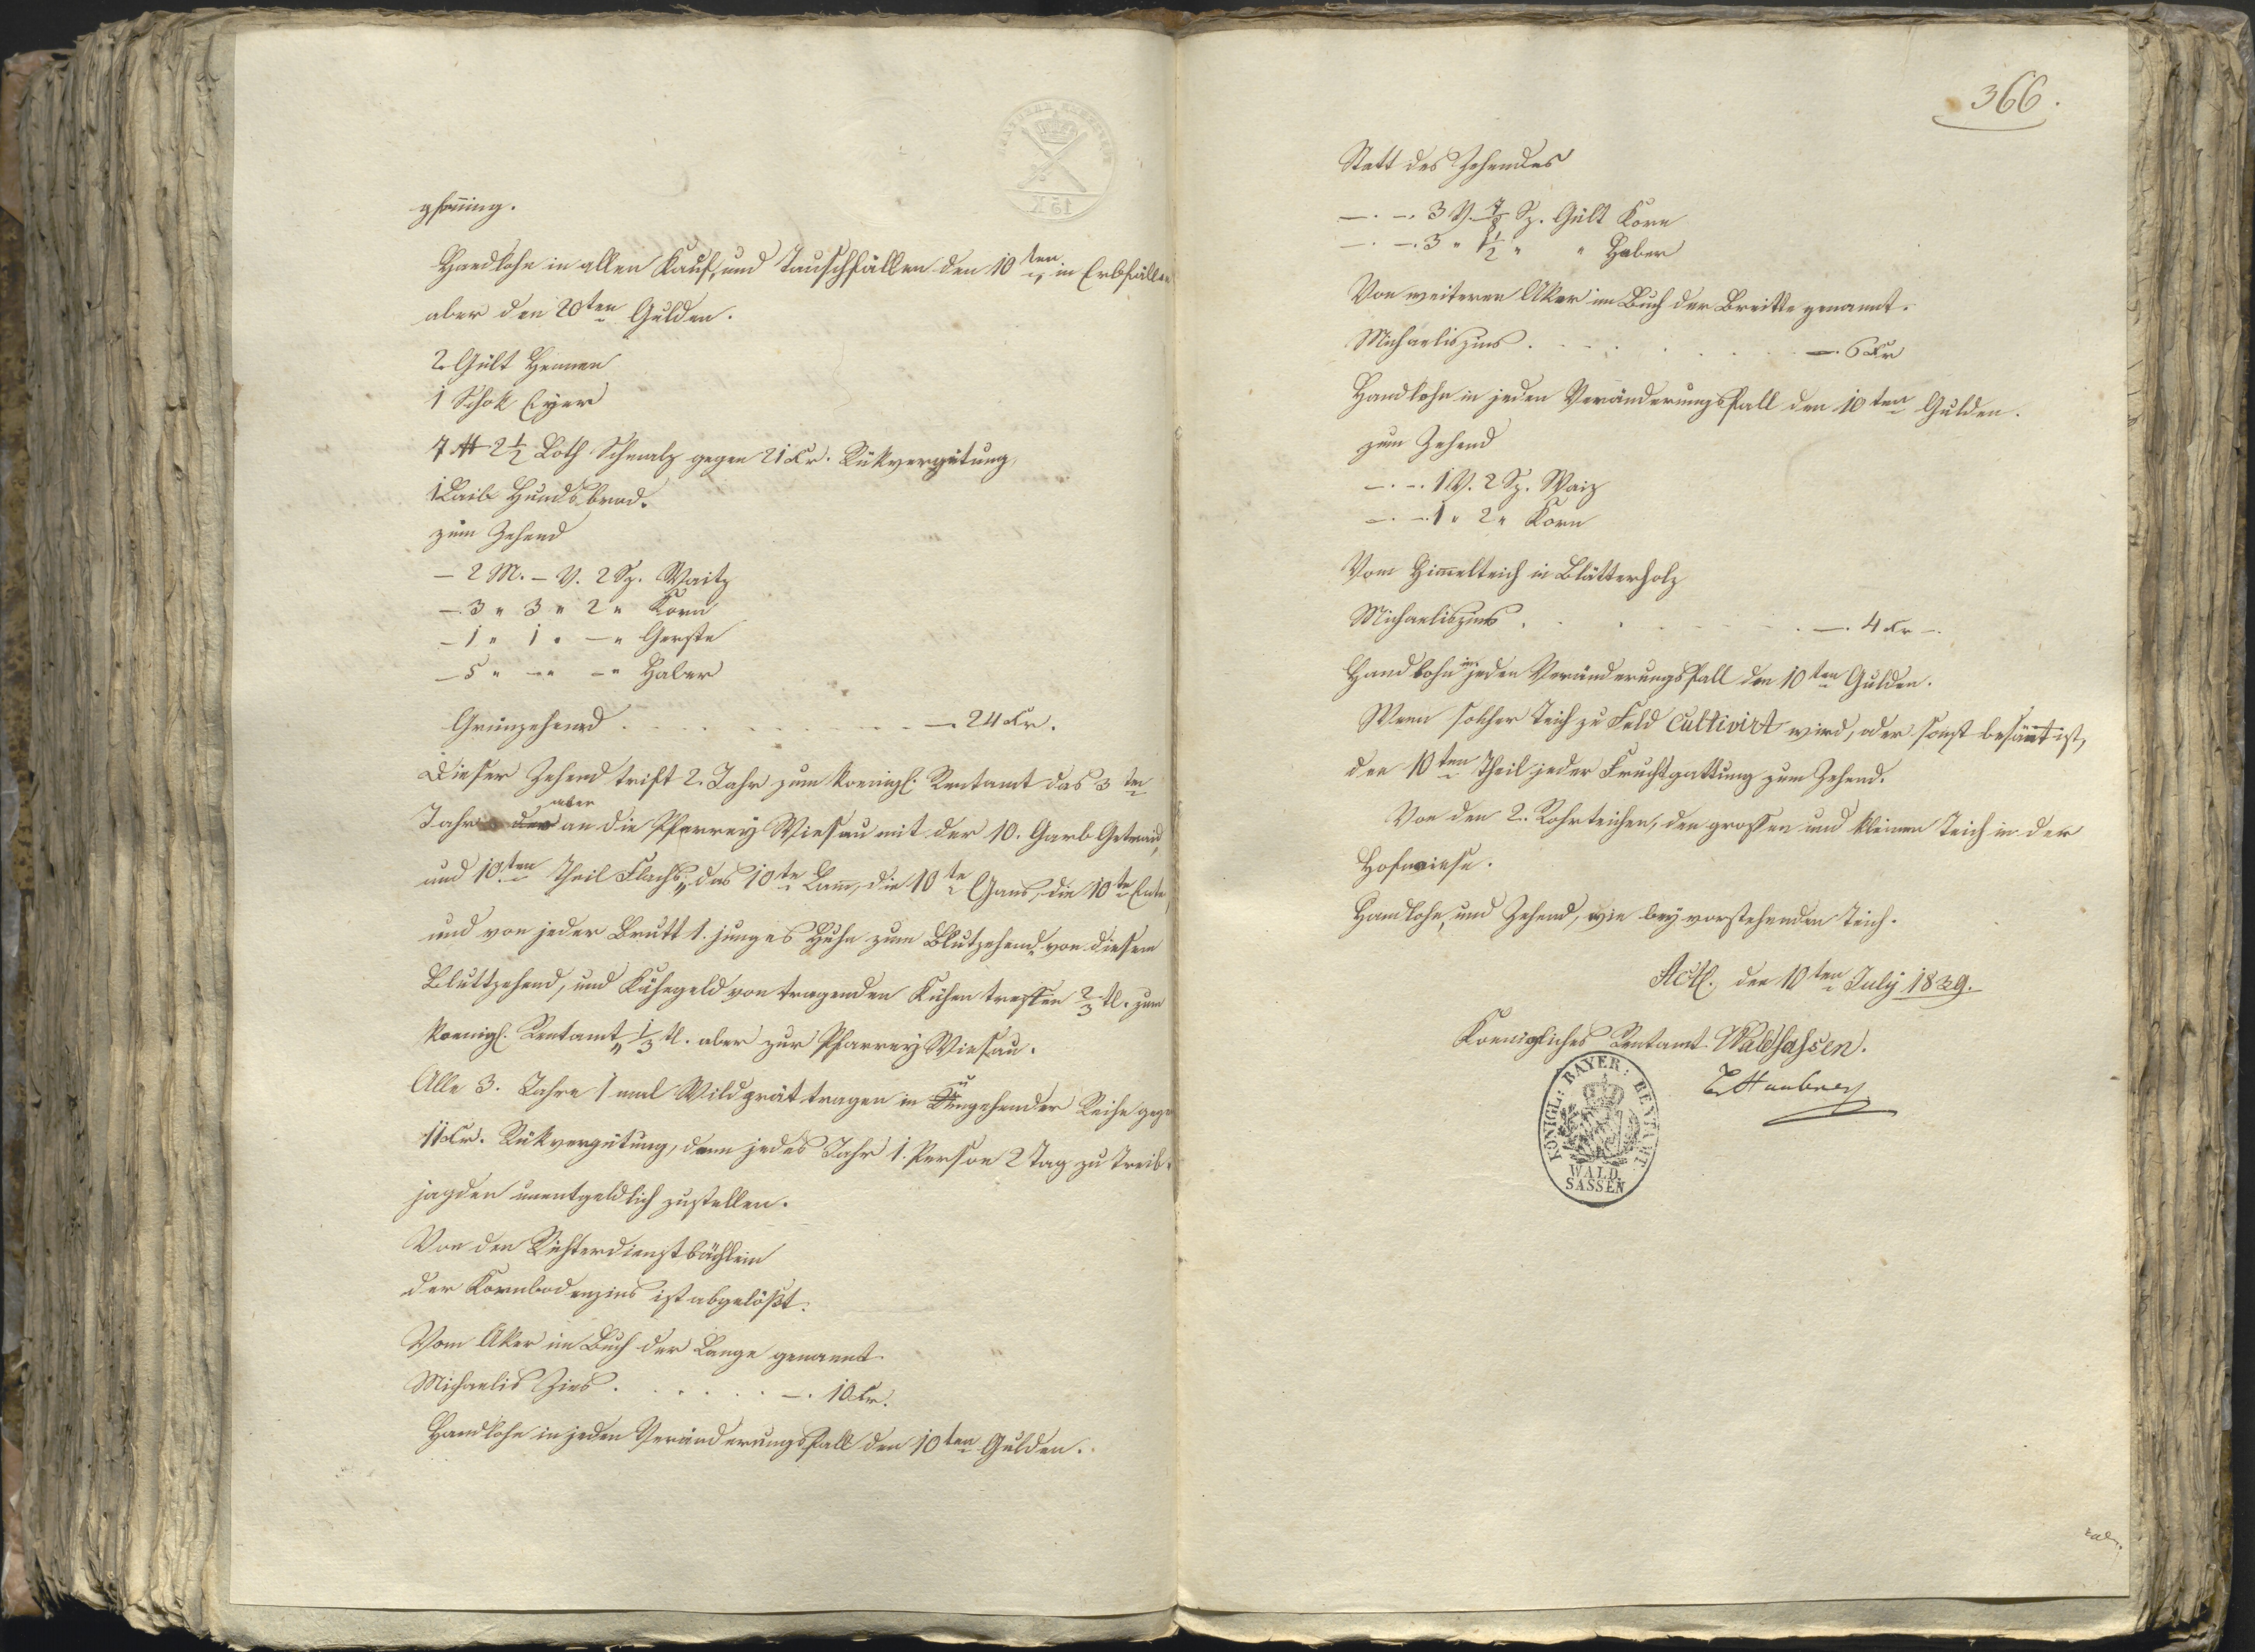 gfenning.
Handlohn in allen Kauf, und Tauschfällen den 10ten, in Erbfällen
aber den 20ten Gulden.
2 Gült Hennen
1 Schok Eyer
7 ℔ 2 1/2 Loth Schmalz gegen 21 Kr. Rükvergütung,
1 Laib Hundsbrod.
zum Zehend
— 2 M. — V. 2 Sz. Waitz
—. 3 " 3 " 2 " Korn
— 1 " 1 " — " Gerste
— 5 " — " — " Haber
Grünzehend . . . . . . . . —. 24 Kr.
Dieser Zehend trift 2. Jahr zum koenigl: Rentamt das 3te
Jahr aber an die Pfarrey Wiesau mit der 10. Garb Getraid,
und 10ten Theil Flachs, das 10te Lam̄, die 10te Gans, die 10te Ente,
und von jeder Brutt 1. junges Huhn zum Blutzehend, von diesem
Bluttzehend, und Kühegeld von tragenden Kühen treffen 2/3 tl. zum
koenigl. Rentamt, 1/3 tl. aber zur Pfarrey Wiesau.
Alle 3. Jahre 1 mal Wildprät tragen in Umgehender Reihe gegen
11 Kr. Rükvergütung, dann jedes Jahr 1. Person 2 Tag zu Treib-
jagden unentgeldlich zustellen.
Von den Richterdienstbächlein
der Kornbodenzins ist abgelößt.
Vom Aker im Buch der Lange genannt
Michaelis Zins . . . . . . —. 10 Kr.
Handlohn in jeden Veränderungsfall den 10ten Gulden.
366.
Statt des Zehendes
—. —. 3 V. 7/8 Sz. Gült Korn
—. —. 3 " 1 1/2 " " Haber
Von weiteren Aker im Buch der Breitte genannt.
Michaeliszins . . . . . . —. 6 Kr
Handlohn in jeden Veränderungsfall den 10ten Gulden.
zum Zehend
—. —. 1 V. 2 Sz. Waiz
—. —. 1 " 2 " Korn
Vom Him̄elteich in Blätterholz
Michaeliszins . . . . . . —. 4 Kr —.
Handlohn in jeden Veränderungsfall den 10ten Gulden.
Wenn solcher Teich zu Feld Cultivirt wird, oder sonst besämt ist,
den 10ten Theil jeder Fruchtgattung zum Zehend.
Von den 2. Rohrteichen, den grossen und kleinen Teich in der
Hofwiese.
Handlohn, und Zehend, wie bey vorstehenden Teich.
Actl. den 10ten July 1839.
Koenigliches Rentamt Waldsassen.
KÖNIGL: BAYER: RENTAMT
WALD
SASSEN